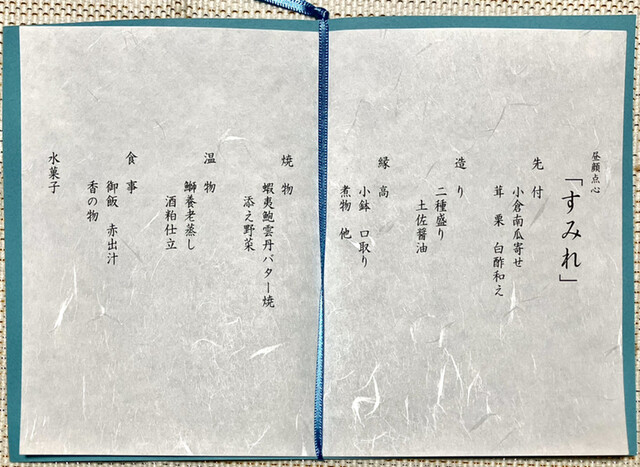 昼顔点心
「すみれ」
先付
小倉南瓜寄せ
茸 栗 白酢和え
造り
二種盛り
土佐醤油
縁高
小鉢 口取り
煮物 他
焼物
蝦夷鮑雲丹バター焼
添え野菜
温物
鰤養老蒸し
酒粕仕立
食事
御飯 赤出汁
香の物
水菓子